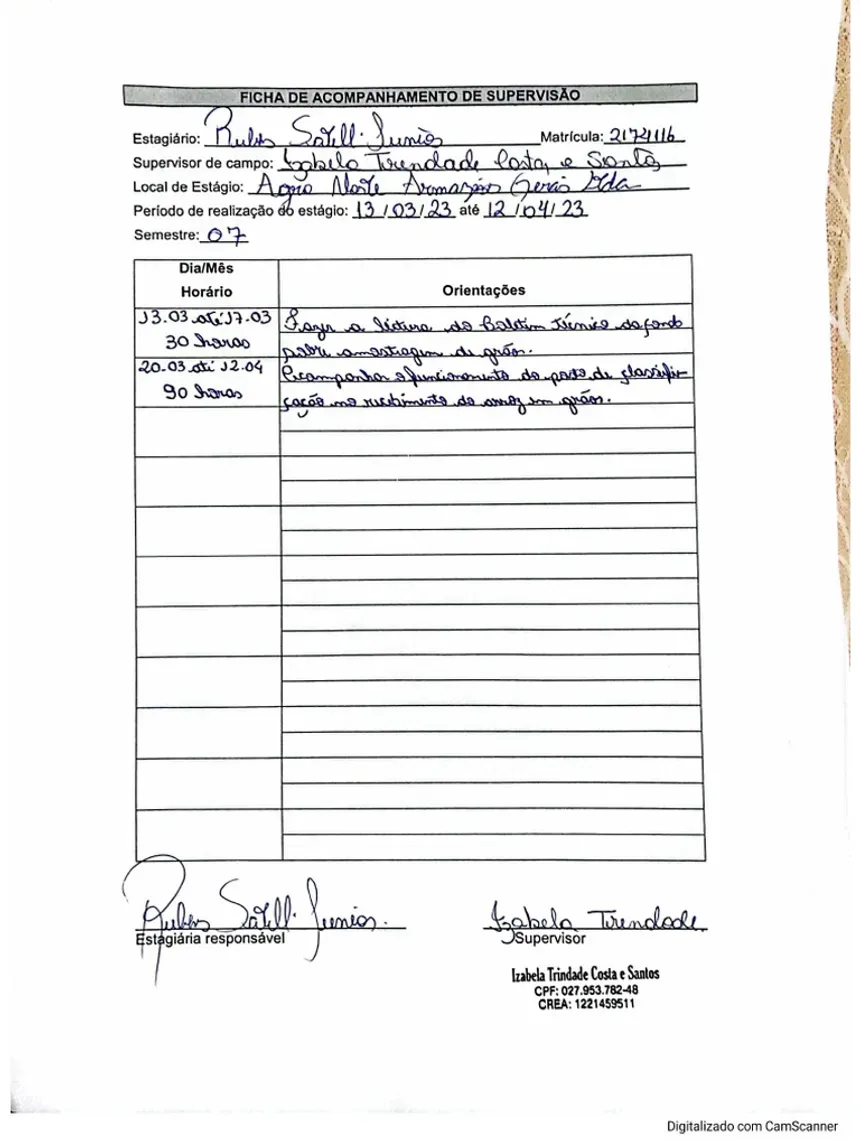 FICHA DE ACOMPANHAMENTO DE SUPERVISÃO
Estagiário: Rubens Satell. Junior Matrícula: 2174116
Supervisor de campo: Izabela Trindade Costa e Santos
Local de Estágio: Agro Norte Armazéns Gerais Ltda
Período de realização do estágio: 13/03/23 até 12/04/23
Semestre: 07
Dia/Mês
Horário
Orientações
13.03 até 17.03
30 horas
Fazer a leitura do Boletim técnico
sobre amostragem de grãos.
20.03 até 12.04
90 horas
Acompanhar o funcionamento do posto de classifi-
cação no recebimento do arroz em grãos.
Rubens Satell. Junior.
Estagiária responsável
Izabela Trindade
Supervisor
Izabela Trindade Costa e Santos
CPF: 027.953.782-48
CREA: 1221459511
Digitalizado com CamScanner